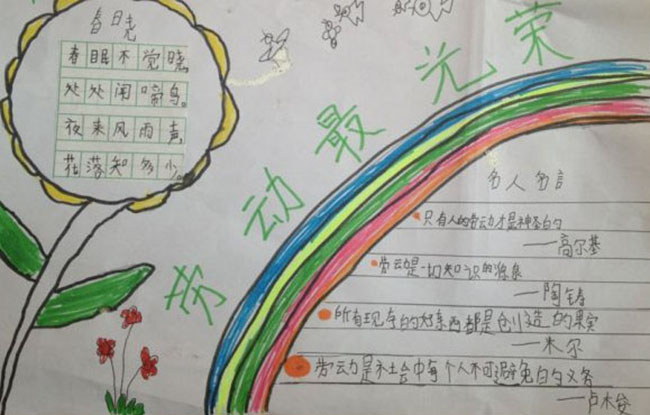 春晓
春眠不觉晓,
处处闻啼鸟。
夜来风雨声,
花落知多少。
劳动最光荣
名人名言
只有人的劳动才是神圣的
——高尔基
劳动是一切知识的源泉
——陶铸
所有现存的好东西都是创造的果实
——米尔
劳动是社会中每个人不可避免的义务
——卢木梭